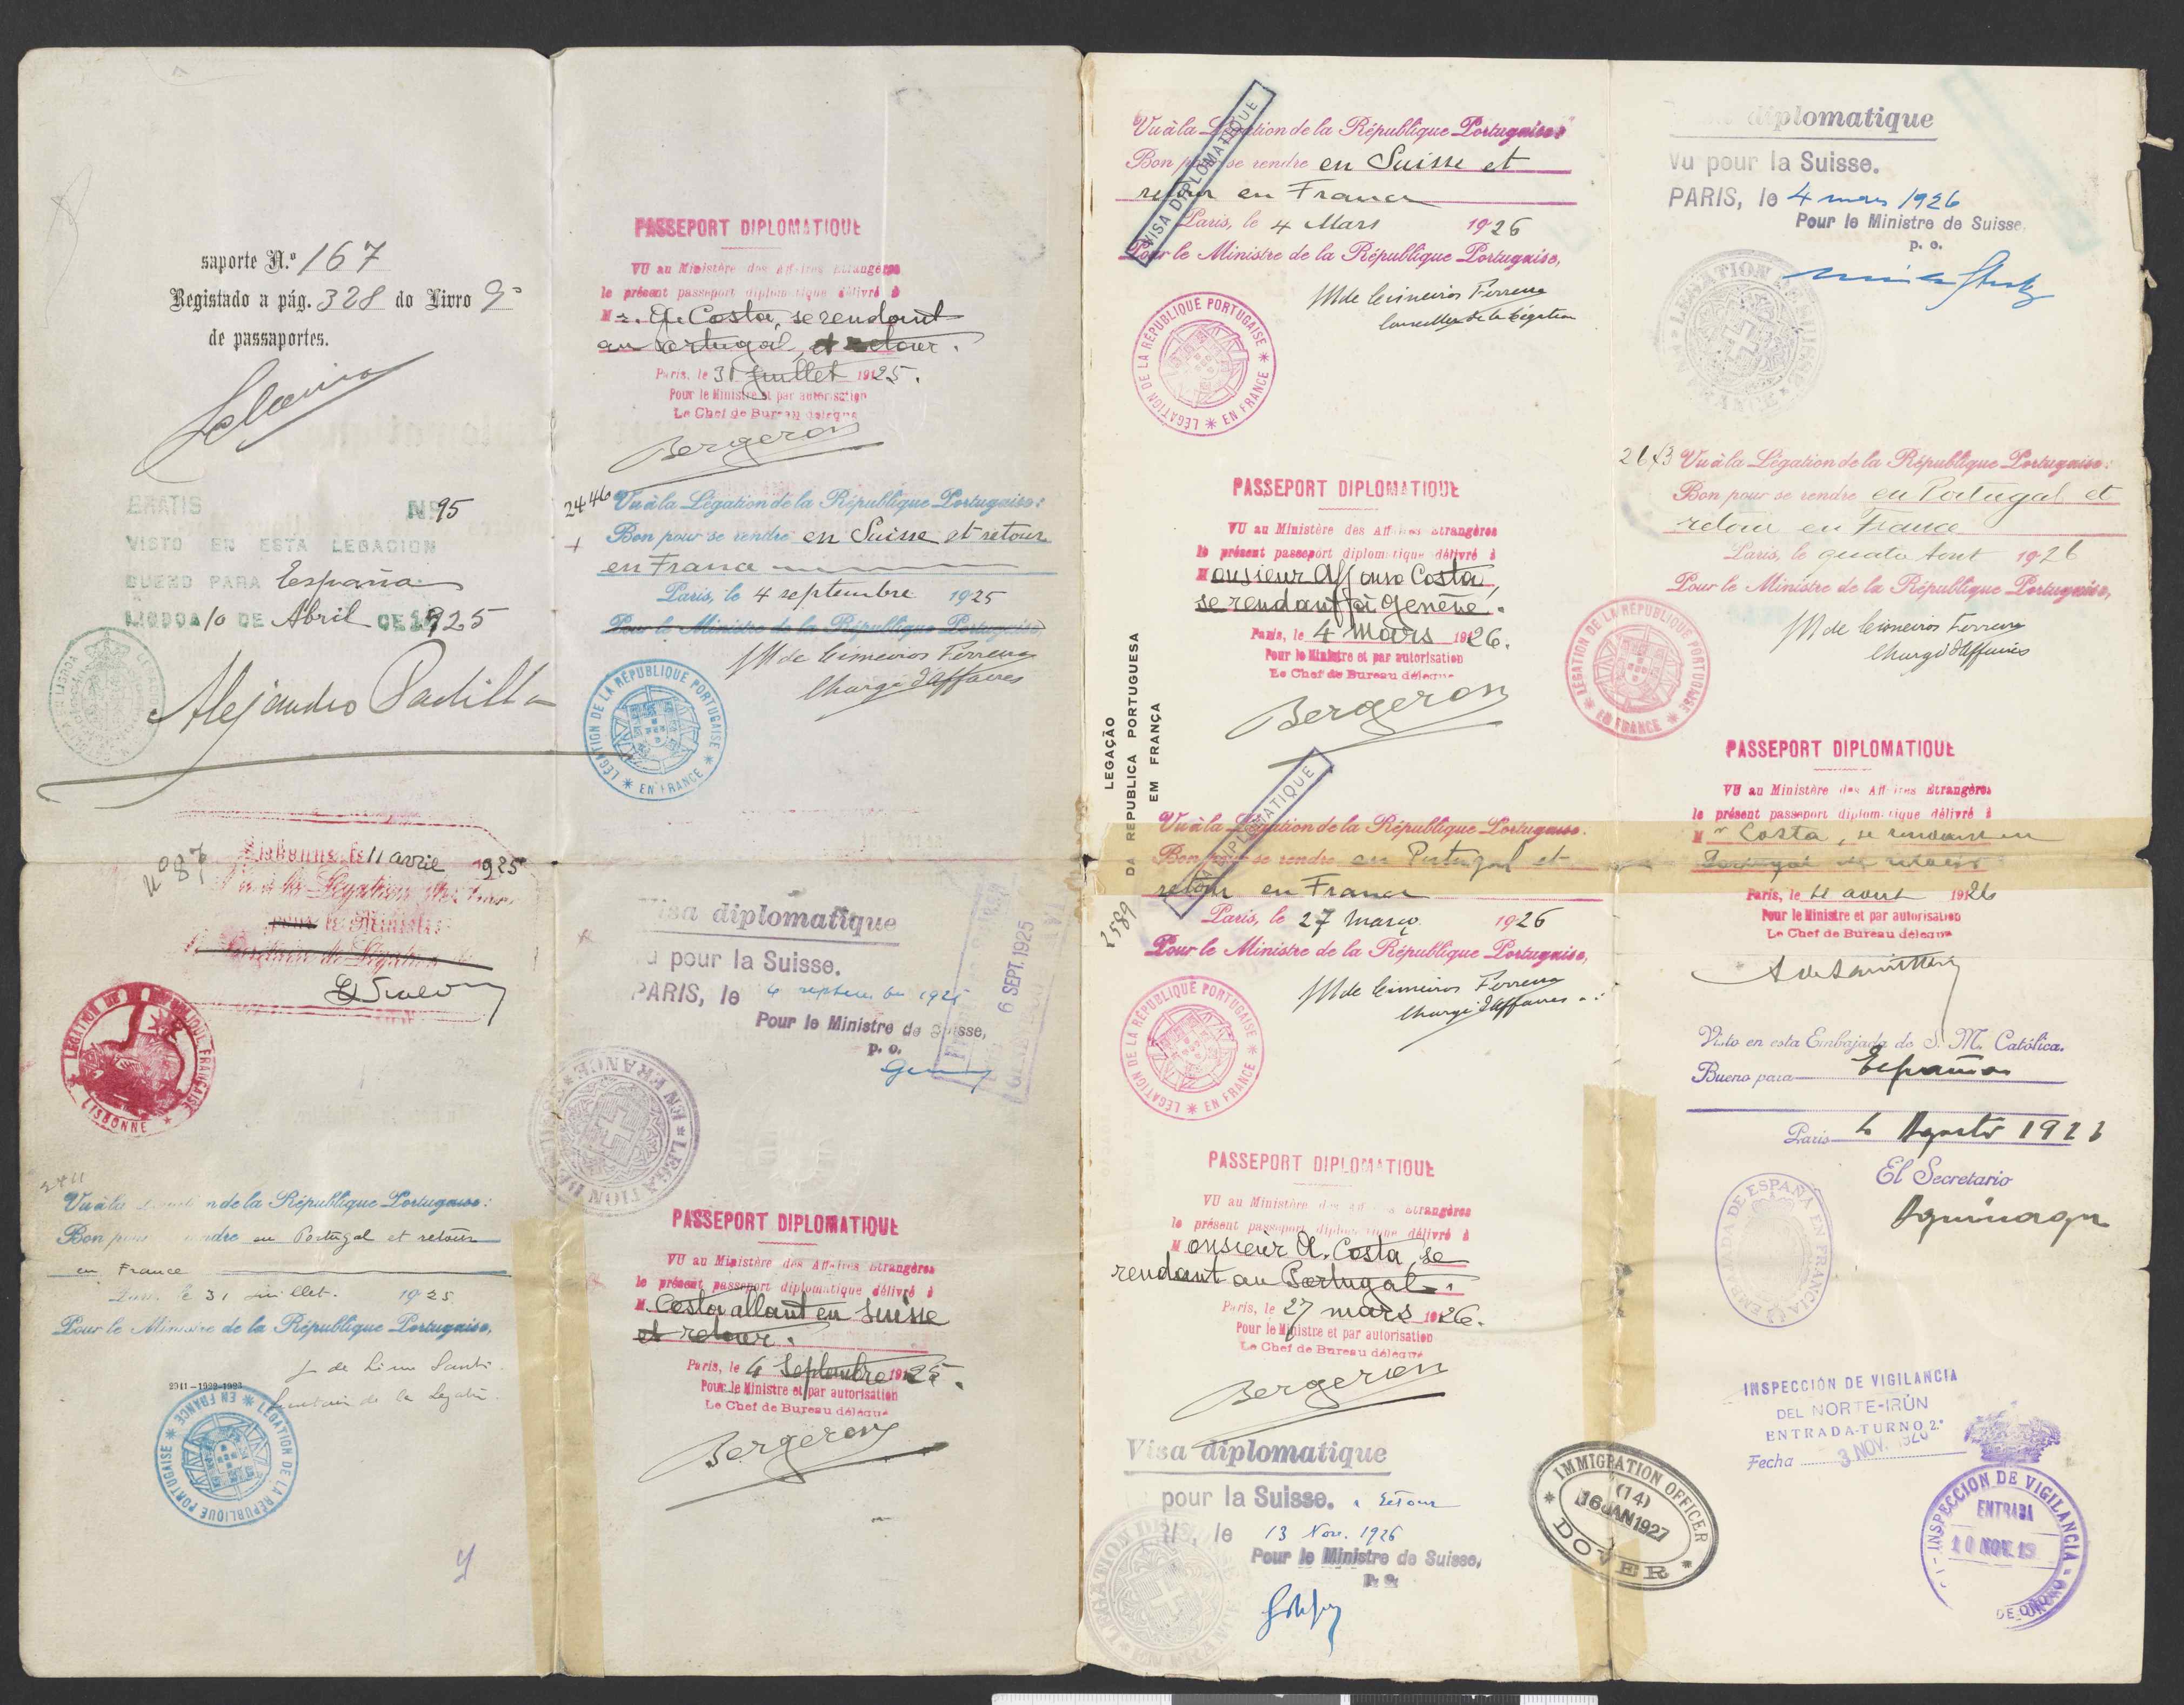 saporte N.º 167
Registado a pág. 328 do Livro 9º
de passaportes.
GRATIS Nº 95
VISTO EN ESTA LEGACION
BUENO PARA España
LISBOA 10 DE Abril DE 1925
Alejandro Padilla
Nº 87
Lisbonne, le 11 avril 1925
Vu à la Légation
pour le Ministre
LEGATION DE LA RÉPUBLIQUE FRANÇAISE
LISBONNE
2411
Vu à la de la République Portugaise:
Bon pour rendre au Portugal et retour
en France
Paris, le 31 juillet. 1925
Pour le Ministre de la République Portugaise,
J de Lima Santos
Secrétaire de la Légation.
2911-1922-1923
LÉGATION DE LA RÉPUBLIQUE PORTUGAISE * EN FRANCE *
PASSEPORT DIPLOMATIQUE
VU au Ministère des Affaires Etrangères
le présent passeport diplomatique délivré à
Mr. A. Costa, se rendant
au Portugal, et retour.
Paris, le 31 Juillet 1925.
Pour le Ministre et par autorisation
Le Chef de Bureau délégué
Bergeron
2446
Vu à la Légation de la République Portugaise:
Bon pour se rendre en Suisse et retour
en France
Paris, le 4 septembre 1925
Pour le Ministre de la République Portugaise,
M de Cimeiros Ferreira
Chargé d'Affaires
LÉGATION DE LA RÉPUBLIQUE PORTUGAISE * EN FRANCE *
Visa diplomatique
u pour la Suisse.
PARIS, le 4 septembre 1925
Pour le Ministre de Suisse,
p. o.
6 SEPT. 1925
LÉGATION DE SUISSE EN FRANCE
PASSEPORT DIPLOMATIQUE
VU au Ministère des Affaires Etrangères
le présent passeport diplomatique délivré à
M. Costa allant en Suisse
et retour.
Paris, le 4 Septembre 1925.
Pour le Ministre et par autorisation
Le Chef de Bureau délégué
Bergeron
VISA DIPLOMATIQUE
Vu à la Légation de la République Portugaise:
Bon pour se rendre en Suisse et
retour en France
Paris, le 4 Mars 1926
Pour le Ministre de la République Portugaise,
M de Cimeiros Ferreira
Conseiller de la Légation
LÉGATION DE LA RÉPUBLIQUE PORTUGAISE * EN FRANCE *
PASSEPORT DIPLOMATIQUE
VU au Ministère des Affaires Etrangères
le présent passeport diplomatique délivré à
Monsieur Affonso Costa,
se rendant à Genève.
Paris, le 4 Mars 1926.
Pour le Ministre et par autorisation
Le Chef de Bureau délégué
Bergeron
LEGAÇÃO
DA REPUBLICA PORTUGUESA
EM FRANÇA
2589
VISA DIPLOMATIQUE
Vu à la Légation de la République Portugaise.
Bon pour se rendre au Portugal et
retour en France
Paris, le 27 março 1926
Pour le Ministre de la République Portugaise,
M de Cimeiros Ferreira
Chargé d'Affaires a.i.
LÉGATION DE LA RÉPUBLIQUE PORTUGAISE * EN FRANCE *
PASSEPORT DIPLOMATIQUE
VU au Ministère des Affaires Etrangères
le présent passeport diplomatique délivré à
Monsieur A. Costa, se
rendant au Portugal.
Paris, le 27 mars 1926.
Pour le Ministre et par autorisation
Le Chef de Bureau délégué
Bergeron
Visa diplomatique
pour la Suisse. & retour
le 13 Nov. 1926
Pour le Ministre de Suisse,
p. o.
IMMIGRATION OFFICER
(14)
16 JAN 1927
* DOVER *
diplomatique
Vu pour la Suisse.
PARIS, le 4 mars 1926
Pour le Ministre de Suisse,
p. o.
LÉGATION DE SUISSE EN FRANCE
2673
Vu à la Légation de la République Portugaise:
Bon pour se rendre en Portugal et
retour en France
Paris, le quatro Aout 1926
Pour le Ministre de la République Portugaise,
M de Cimeiros Ferreira
Chargé d'Affaires
LÉGATION DE LA RÉPUBLIQUE PORTUGAISE * EN FRANCE *
PASSEPORT DIPLOMATIQUE
VU au Ministère des Affaires Etrangères
le présent passeport diplomatique délivré à
Mr Costa, se rendant en
Portugal et retour
Paris, le 4 aout 1926
Pour le Ministre et par autorisation
Le Chef de Bureau délégué
Visto en esta Embajada de S. M. Católica.
Bueno para España
Paris 4 Agosto 1926
El Secretario
Aguinaga
EMBAJADA DE ESPAÑA EN FRANCIA
INSPECCIÓN DE VIGILANCIA
DEL NORTE-IRÚN
ENTRADA-TURNO 2.º
Fecha 3 NOV. 1926
INSPECCION DE VIGILANCIA
ENTRADA
10 NOV. 19